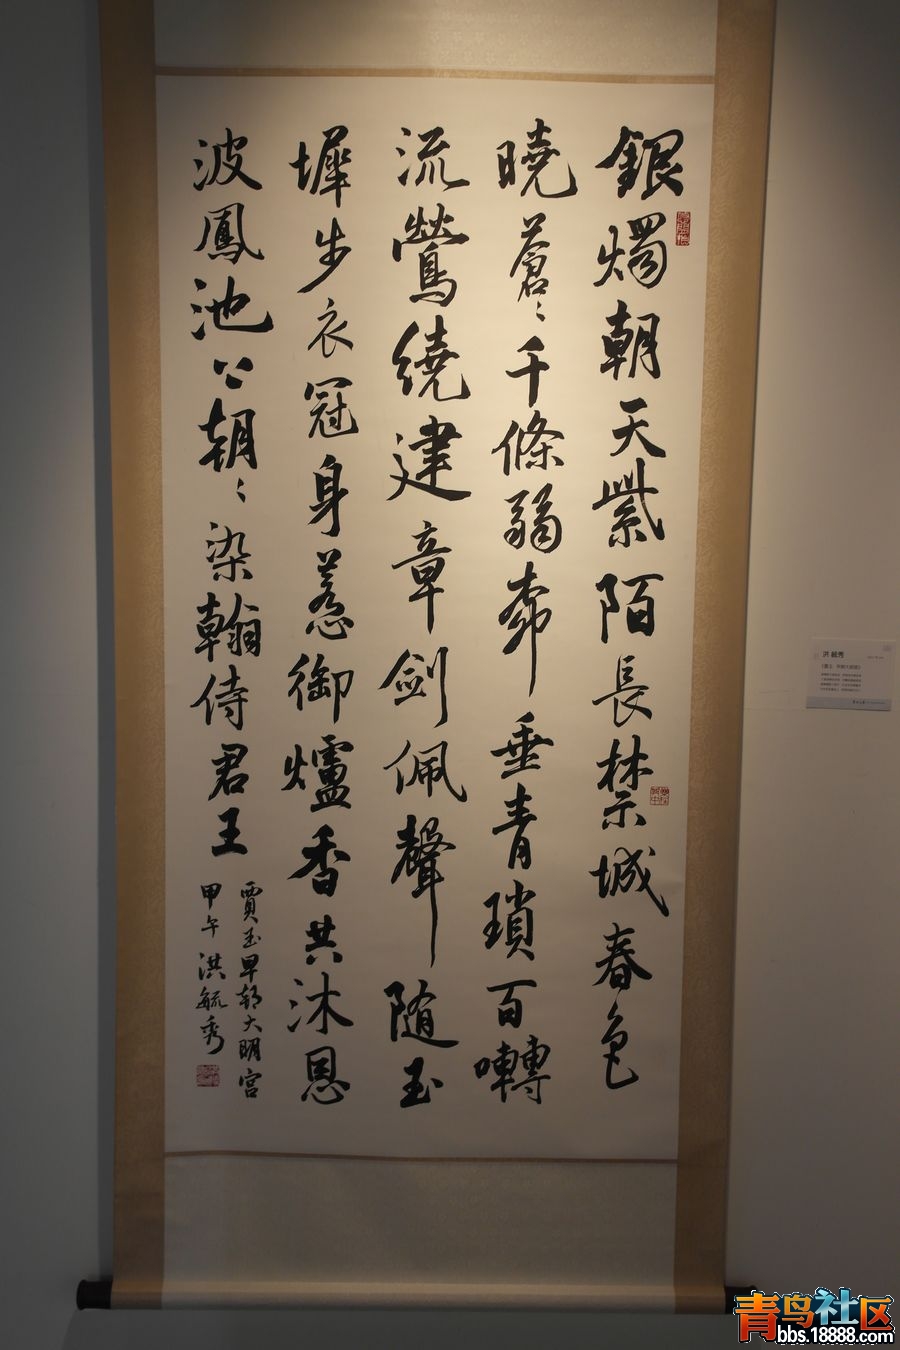 銀燭朝天紫陌長禁城春色
曉蒼〻千條弱柳垂青瑣百囀
流鶯繞建章劍佩聲隨玉
墀步衣冠身惹御爐香共沐恩
波鳳池公朝〻染翰侍君王
賈玉早朝大明宮
甲午 洪毓秀
洪 毓秀
青鸟社区
bbs.18888.com